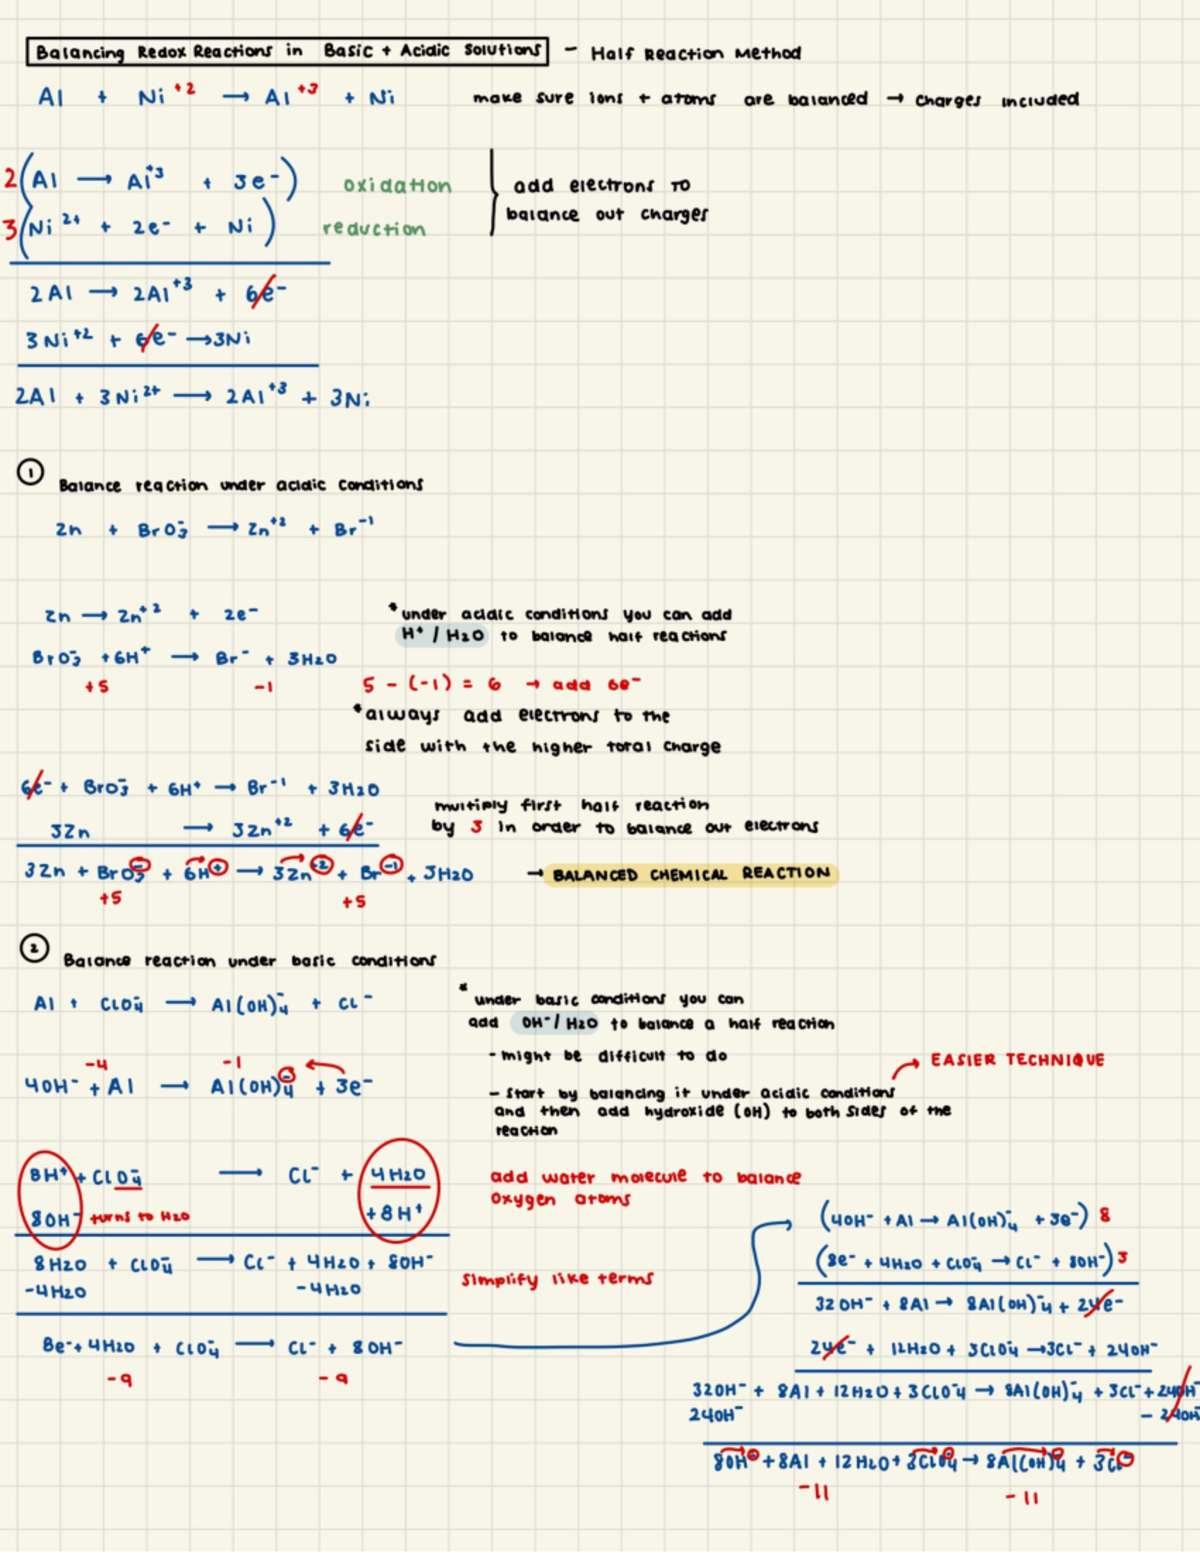 Balancing Redox Reactions in Basic + Acidic Solutions - Half Reaction Method
Al + Ni⁺² → Al⁺³ + Ni make sure ions + atoms are balanced → charges included
2(Al → Al⁺³ + 3e⁻) oxidation add electrons to
3(Ni²⁺ + 2e⁻ + Ni) reduction balance out charges
2Al → 2Al⁺³ + 6e⁻
3Ni⁺² + 6e⁻ → 3Ni
2Al + 3Ni²⁺ → 2Al⁺³ + 3Ni
① Balance reaction under acidic conditions
Zn + BrO₃⁻ → Zn⁺² + Br⁻¹
Zn → Zn⁺² + 2e⁻ *under acidic conditions you can add
H⁺ / H₂O to balance half reactions
BrO₃⁻ + 6H⁺ → Br⁻ + 3H₂O
+5 -1 5 - (-1) = 6 → add 6e⁻
*always add electrons to the
side with the higher total charge
6e⁻ + BrO₃⁻ + 6H⁺ → Br⁻¹ + 3H₂O
3Zn → 3Zn⁺² + 6e⁻
multiply first half reaction
by 3 in order to balance out electrons
3Zn + BrO₃⁻ + 6H⁺ → 3Zn⁺² + Br⁻¹ + 3H₂O → BALANCED CHEMICAL REACTION
+5 +5
② Balance reaction under basic conditions
Al + ClO₄⁻ → Al(OH)₄⁻ + Cl⁻
*under basic conditions you can
add OH⁻/H₂O to balance a half reaction
- might be difficult to do
→ EASIER TECHNIQUE
- start by balancing it under acidic conditions
and then add hydroxide (OH) to both sides of the
reaction
-4 -1
4OH⁻ + Al → Al(OH)₄⁻ + 3e⁻
8H⁺ + ClO₄⁻ → Cl⁻ + 4H₂O
8OH⁻ turns to H₂O +8H⁺
add water molecule to balance
oxygen atoms
8H₂O + ClO₄⁻ → Cl⁻ + 4H₂O + 8OH⁻
-4H₂O -4H₂O
simplify like terms
8e⁻+4H₂O + ClO₄⁻ → Cl⁻ + 8OH⁻
-9 -9
(4OH⁻ + Al → Al(OH)₄⁻ + 3e⁻) 8
(8e⁻ + 4H₂O + ClO₄⁻ → Cl⁻ + 8OH⁻) 3
32OH⁻ + 8Al → 8Al(OH)₄⁻ + 24e⁻
24e⁻ + 12H₂O + 3ClO₄⁻ → 3Cl⁻ + 24OH⁻
32OH⁻ + 8Al + 12H₂O + 3ClO₄⁻ → 8Al(OH)₄⁻ + 3Cl⁻ + 24OH⁻
24OH⁻ - 24OH⁻
8OH⁻ + 8Al + 12H₂O + 3ClO₄⁻ → 8Al(OH)₄⁻ + 3Cl⁻
-11 -11